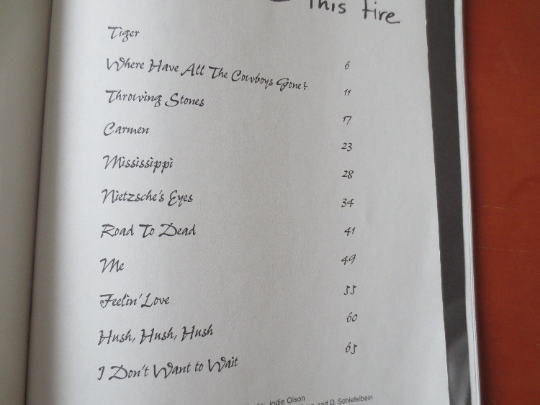 This Fire
Tiger 6
Where Have All The Cowboys Gone? 11
Throwing Stones 17
Carmen 23
Mississippi 28
Nietzsche's Eyes 34
Road To Dead 41
Me 49
Feelin' Love 55
Hush, Hush, Hush 60
I Don't Want to Wait 65
Jodie Olson
D. Schiefelbein